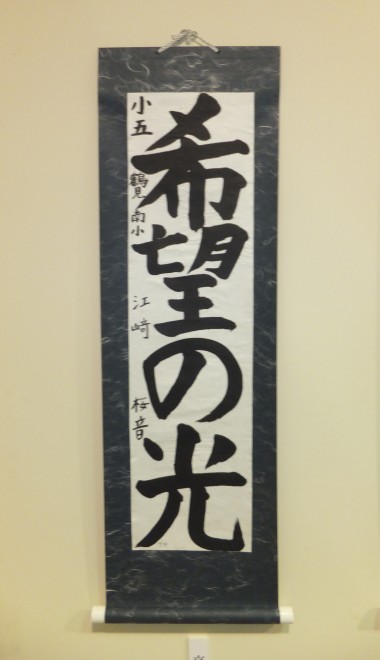 希望の光
小五 鶴見南小 江﨑 桜音